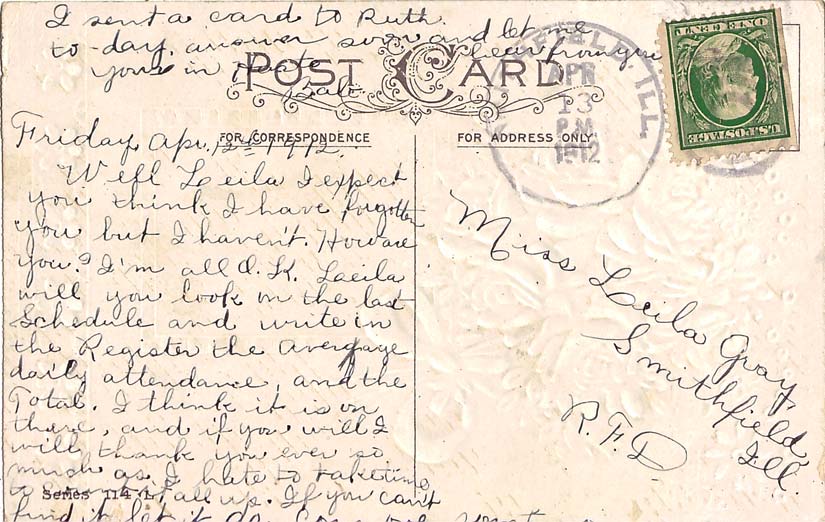 I sent a card to Ruth
to-day. answer soon and let me
hear from you
yours in haste
POST CARD
FOR CORRESPONDENCE
FOR ADDRESS ONLY
ILL.
APR
13
P.M.
1912
U.S. POSTAGE
ONE CENT
Friday Apr. 12th 1912.
Well Leila I expect
you think I have forgotten
you but I haven't. How are
you? I'm all O.K. Laeila
will you look on the last
Schedule and write in
the Register the average
daily attendance, and the
Total. I think it is on
there, and if you will I
will thank you ever so
much as I hate to take time
to all up. If you can't
find it let it go
Series 114 L
Miss Leila Gray,
Smithfield,
Ill.
R.F.D